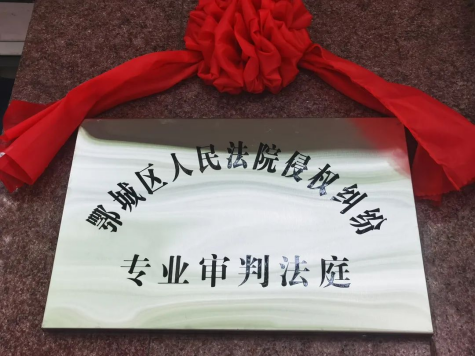 鄂城区人民法院侵权纠纷
专业审判法庭